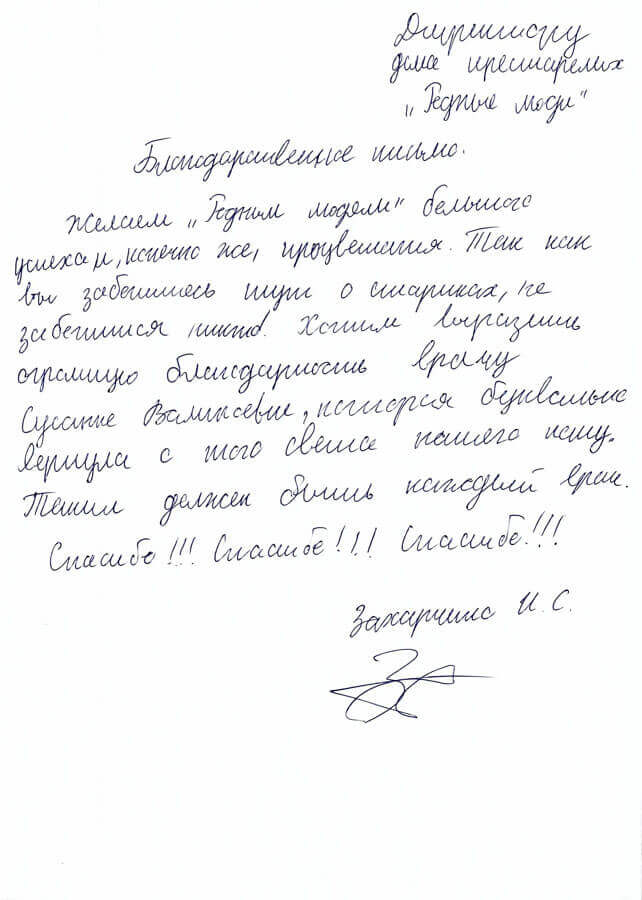 Директору
дома престарелых
„Родные люди"
Благодарственное письмо.
Желаем „Родным людям" большого
успеха и, конечно же, процветания. Так как
вы заботитесь тут о стариках, не
заботится никто. Хотим выразить
огромную благодарность врачу
Сусанне, которая буквально
вернула с того света нашего папу.
Таким должен быть каждый врач.
Спасибо!!! Спасибо!!! Спасибо!!!
Захарченко И. С.